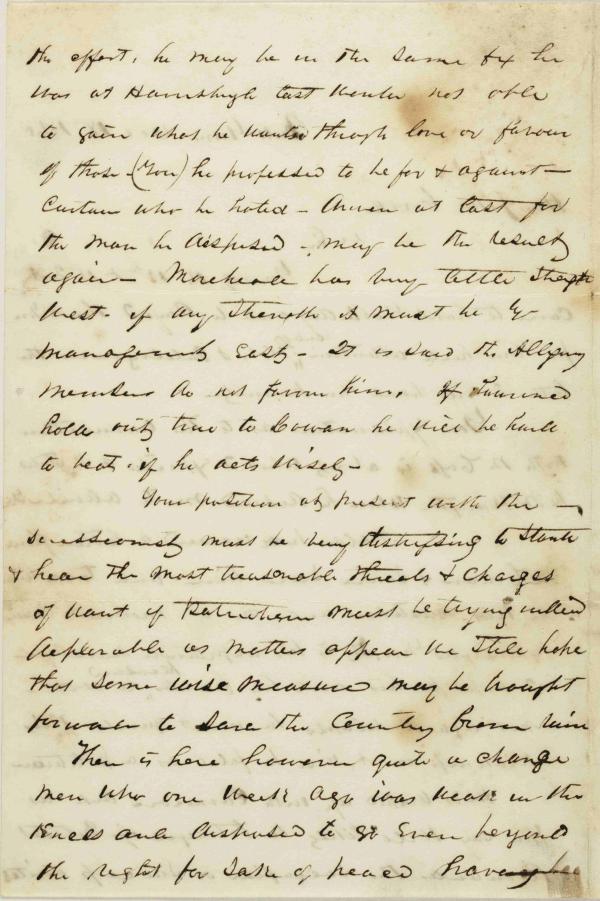 the effort, he may be in the same fix he
was at Harrisburgh last winter not able
to gain what he wanted through love or favour
of those (You) he professed to be for & against
Curtin who he hated - at last for
the man he despised - may be the result
again - Morehead has very little strength
West - if any strength it must be by
management East - It is said the Allegeny
members do not favour him. If
hold out true to Cowan he will be hard
to beat - if he acts wisely -
Your position at present with the -
secessionists must be very distressing to stand
& hear the most treasonable threats & charges
of want of Patriotism must be trying indeed
deplorable as matters appear we still hope
that some wise measure may be brought
forward to save the Country from ruin
There is here however quite a change
men who one week ago was weak in the
knees and disposed to go even beyond
the right for sake of peace